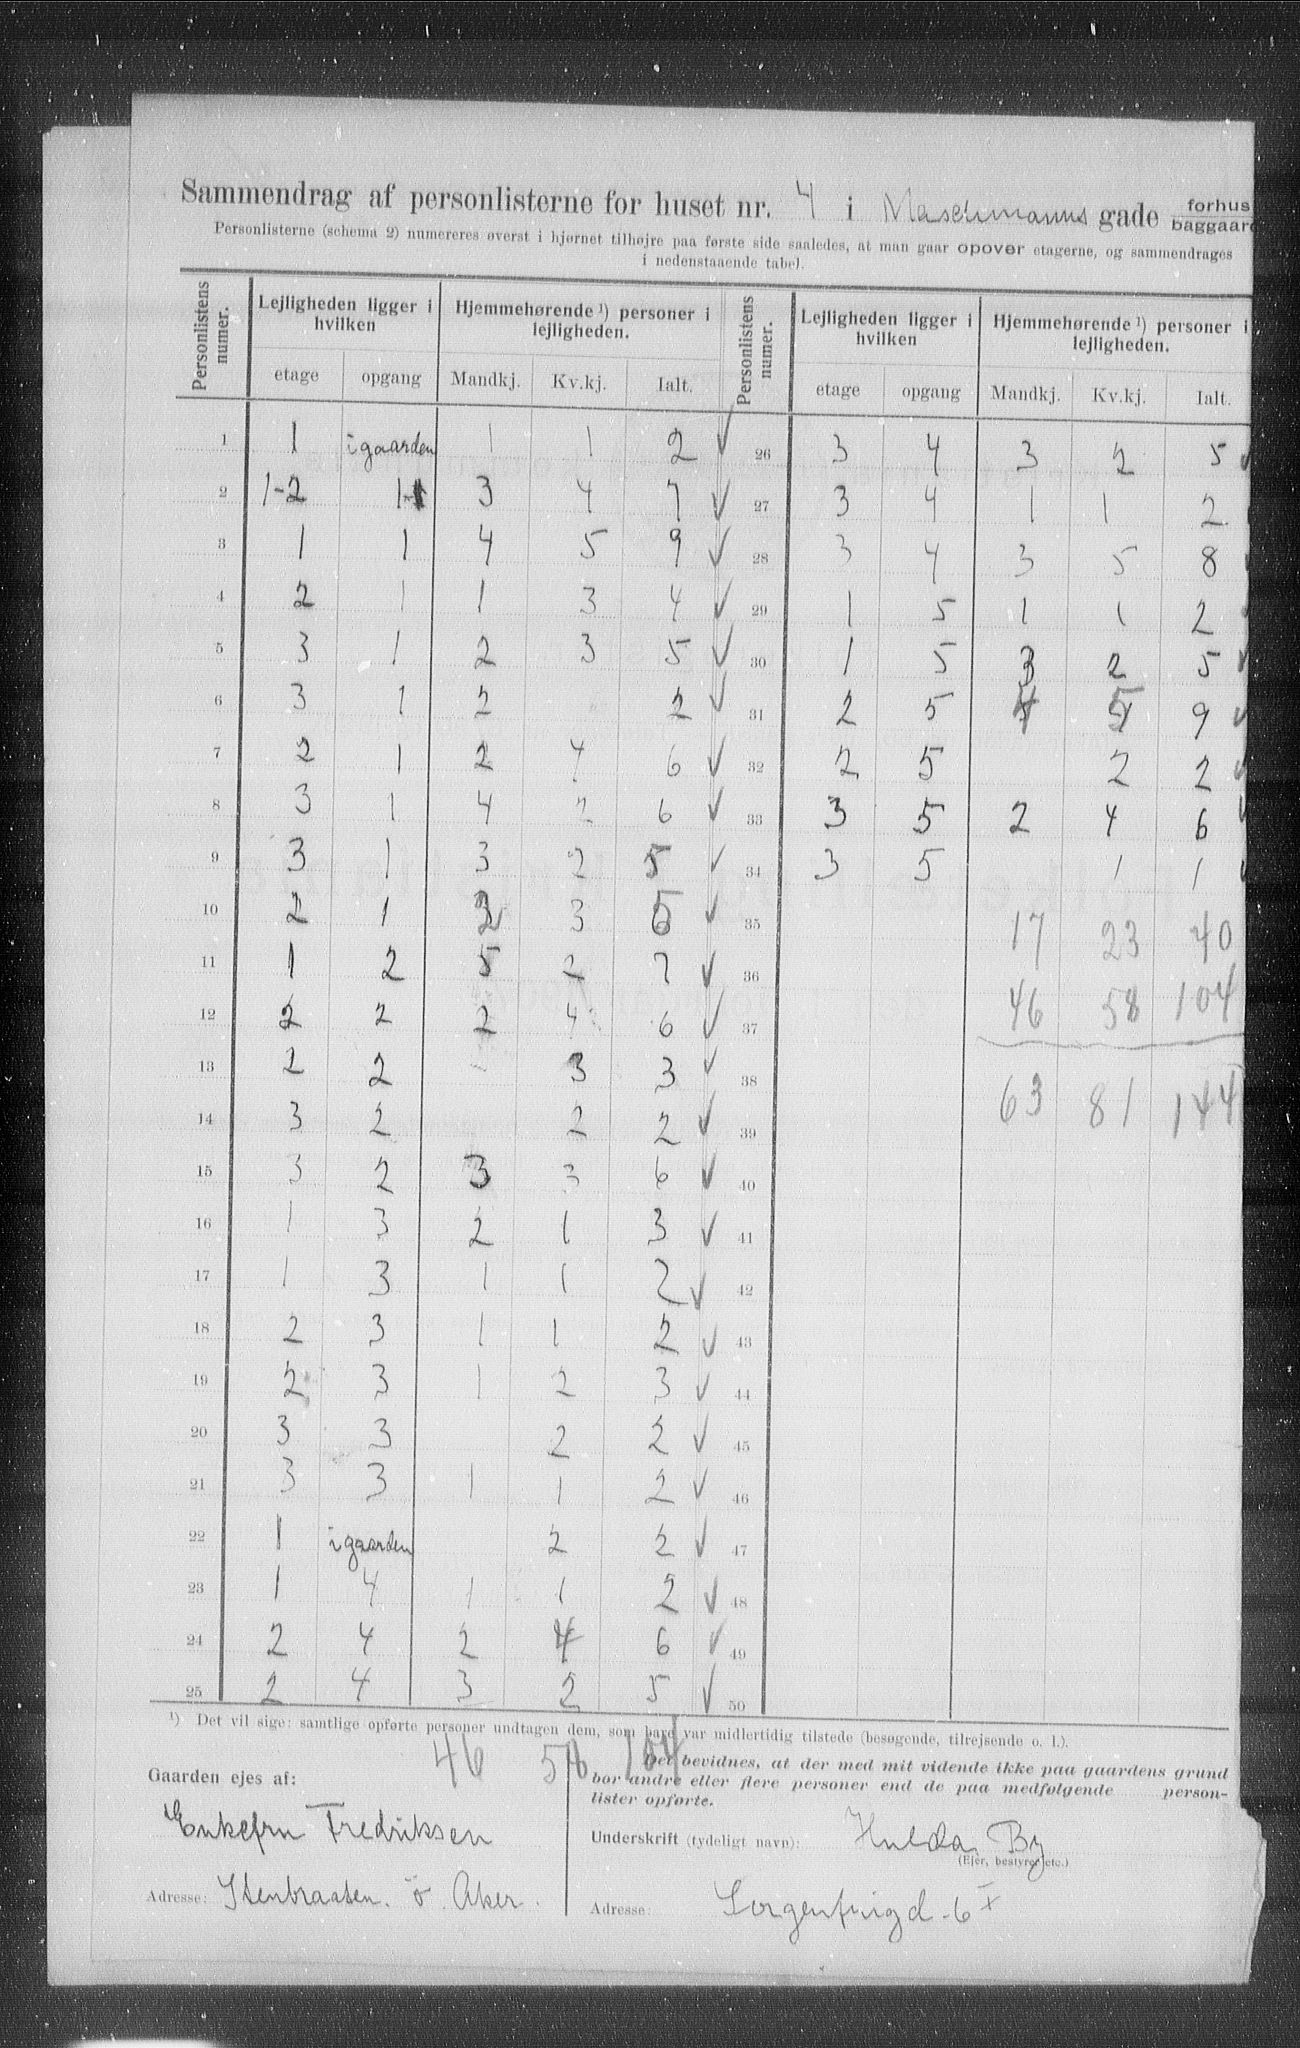 Sammendrag af personlisterne for huset nr. 4 i Maschmanns gade forhus baggaard
Personlisterne (schema 2) numereres øverst i hjørnet tilhøjre paa første side saaledes, at man gaar opover etagerne, og sammendrages
i nedenstaaende tabel.
Personlistens numer. Lejligheden ligger i hvilken Hjemmehørende ¹) personer i lejligheden. Personlistens numer. Lejligheden ligger i hvilken Hjemmehørende ¹) personer i lejligheden.
etage opgang Mandkj. Kv.kj. Ialt. etage opgang Mandkj. Kv.kj. Ialt.
1 1 i gaarden 1 1 2 ✓ 26 3 4 3 2 5 ✓
2 1-2 1 3 4 7 ✓ 27 3 4 1 1 2
3 1 1 4 5 9 ✓ 28 3 4 3 5 8
4 2 1 1 3 4 ✓ 29 1 5 1 1 2
5 3 1 2 3 5 ✓ 30 1 5 3 2 5 ✓
6 3 1 2 2 ✓ 31 2 5 4 5 9 ✓
7 2 1 2 4 6 ✓ 32 2 5 2 2 ✓
8 3 1 4 2 6 ✓ 33 3 5 2 4 6 ✓
9 3 1 3 2 5 ✓ 34 3 5 1 1 ✓
10 2 1 2 3 5 ✓ 35 17 23 40
11 1 2 5 2 7 ✓ 36
12 2 2 2 4 6 ✓ 37 46 58 104
13 2 2 3 3 ✓ 38
14 3 2 2 2 ✓ 39 63 81 144
15 3 2 3 3 6 ✓ 40
16 1 3 2 1 3 ✓ 41
17 1 3 1 1 2 ✓ 42
18 2 3 1 1 2 ✓ 43
19 2 3 1 2 3 ✓ 44
20 3 3 2 2 ✓ 45
21 3 3 1 1 2 ✓ 46
22 1 i gaarden 2 2 ✓ 47
23 1 4 1 1 2 ✓ 48
24 2 4 2 4 6 ✓ 49
25 2 4 3 2 5 ✓ 50
¹) Det vil sige: samtlige opførte personer undtagen dem, som bare var midlertidig tilstede (besøgende, tilrejsende o. l.).
46 58 104
Gaarden ejes af:
Enkefru Fredriksen
Adresse: Stenbraaten. ö. Aker.
Det bevidnes, at der med mit vidende ikke paa gaardens grund
bor andre eller flere personer end de paa medfølgende person-
lister opførte.
Underskrift (tydeligt navn): Hulda By
(Ejer, bestyrer etc.)
Adresse: Sorgenfrigd. 6 I